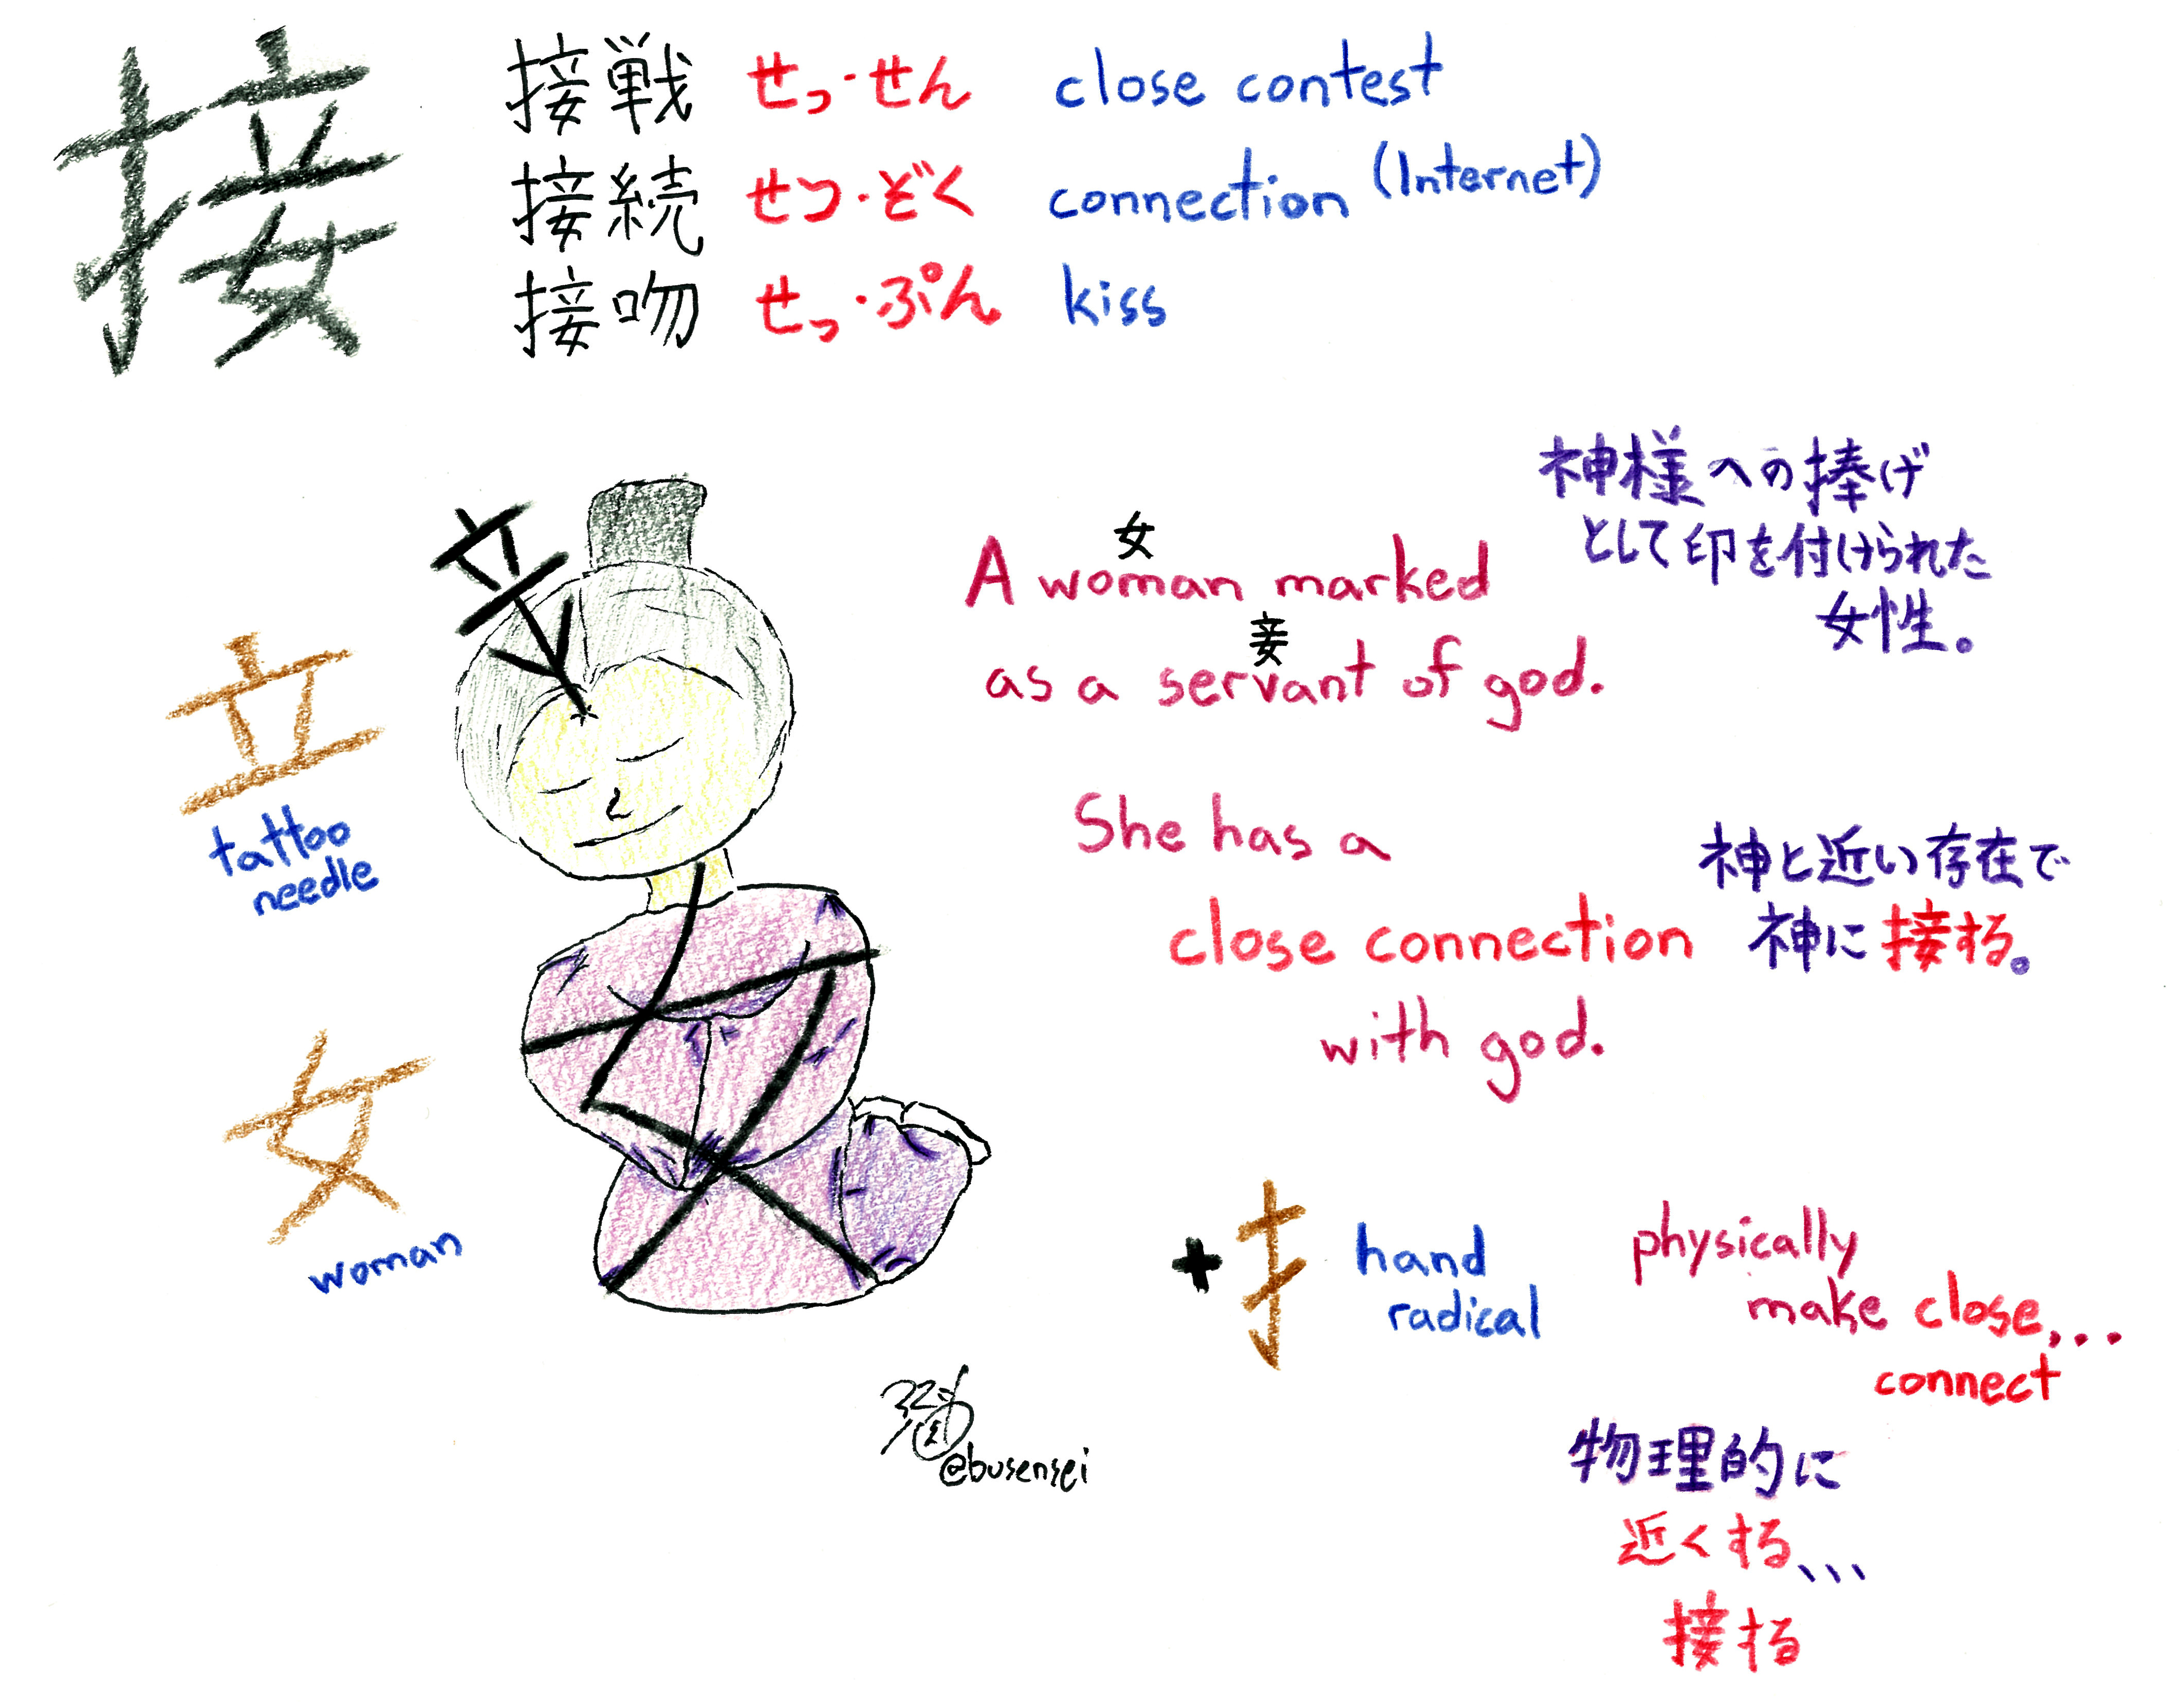 接
接戦 せっ・せん close contest
接続 せつ・ぞく connection (Internet)
接吻 せっ・ぷん kiss
立
立
tattoo
needle
女
woman
女
A woman marked
妾
as a servant of god.
神様への捧げ
として印を付けられた
女性。
She has a
close connection
with god.
神と近い存在で
神に接する。
+ 扌 hand
radical
physically
make close,...
connect
物理的に
近くする、、、
接する
@busensei